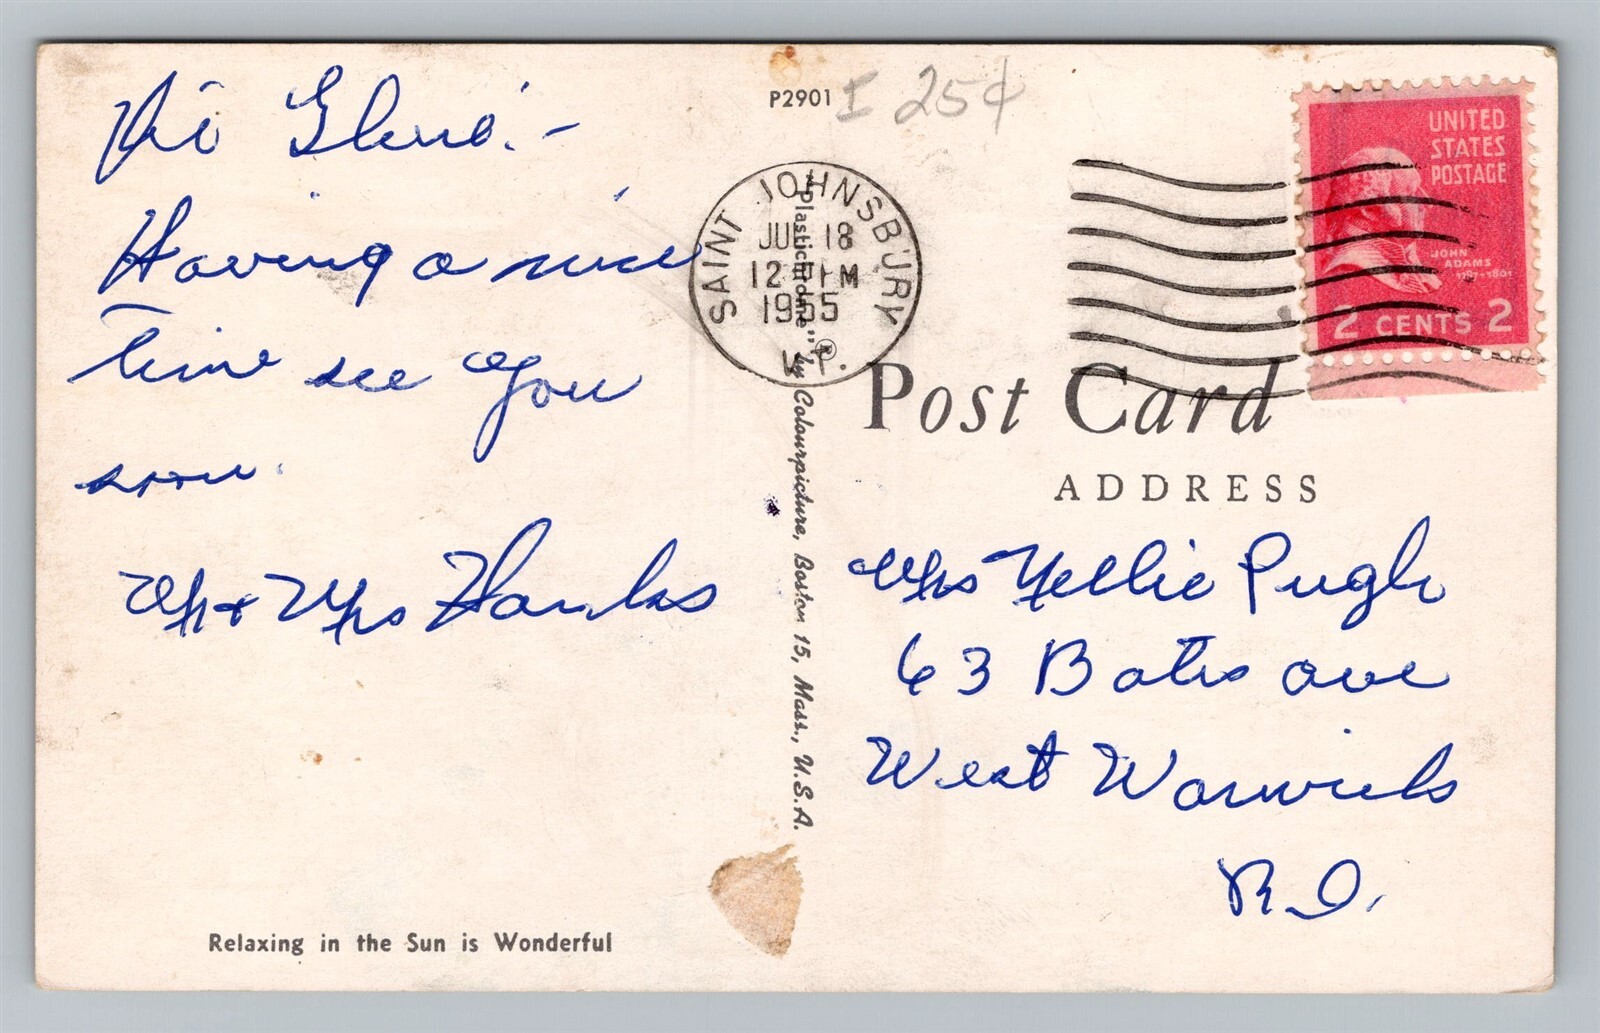 P2901 I 25¢
UNITED
STATES
POSTAGE
JOHN
ADAMS
1797-1801
2 CENTS 2
SAINT JOHNSBURY
JUL 18
12 PM
1955
VT.
Hi
Having a nice
Time see you
soon.
Mr + Mrs Hanks
Relaxing in the Sun is Wonderful
"Plastichrome" ® by Colourpicture, Boston 15, Mass., U.S.A.
Post Card
ADDRESS
Mrs Nellie Pugh
63 Bates ave
West Warwick
R.I.